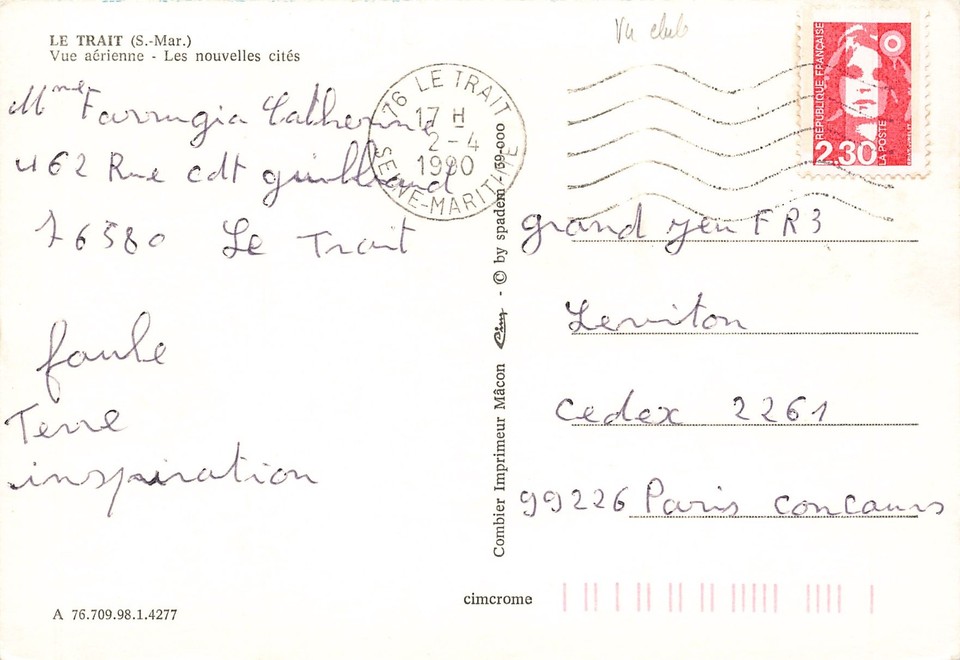 LE TRAIT (S.-Mar.)
Vue aérienne - Les nouvelles cités
Mme Farrugia Catherine
462 Rue cdt guilbaud
76580 Le Trait
foule
Terre
inspiration
Vu club
76 LE TRAIT
17 H
2-4
1990
SEINE-MARITIME
RÉPUBLIQUE FRANÇAISE
2.30
LA POSTE
grand jeu FR3
Leviton
Cedex 2261
99226 Paris concours
Combier Imprimeur Mâcon Cim - © by spadem / 69-000
cimcrome
A 76.709.98.1.4277